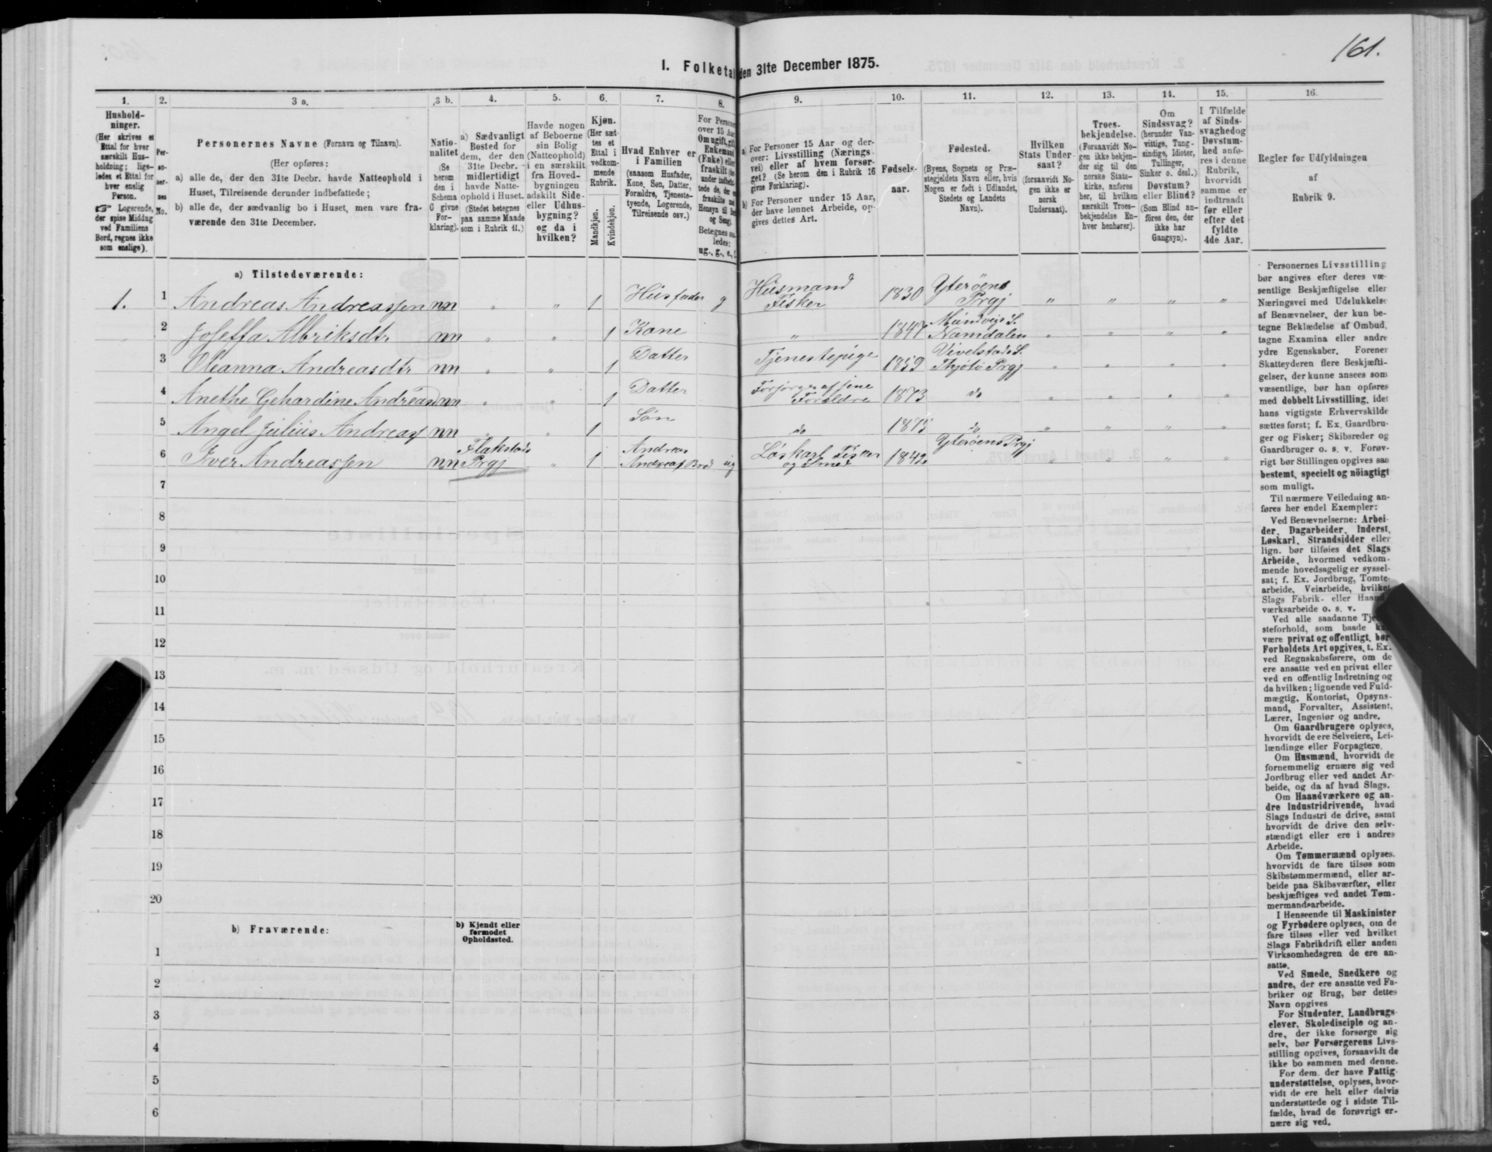 161.
I. Folketal den 31te December 1875.
1.
Hushold-
ninger.
(Her skrives et
Ettal for hver
særskilt Hus-
holdning; lige-
ledes et Ettal for
hver enslig
Person.
☞ Logerende,
der spise Middag
ved Familiens
Bord, regnes ikke
som enslige).
2.
Per-
so-
ner-
nes
No.
3 a.
Personernes Navne (Fornavn og Tilnavn).
(Her opføres:
a) alle de, der den 31te Decbr. havde Natteophold i
Huset, Tilreisende derunder indbefattede;
b) alle de, der sædvanlig bo i Huset, men vare fra-
værende den 31te December.
3 b.
Natio-
nalitet
(Se
herom
den i
Schema
0 givne
For-
klaring).
4.
a) Sædvanligt
Bosted for
dem, der den
31te Decbr.
midlertidigt
havde Natte-
ophold i Huset.
(Stedet betegnes
paa samme Maade
som i Rubrik 11.)
5.
Havde nogen
af Beboerne
sin Bolig
(Natteophold)
i en særskilt
fra Hoved-
bygningen
adskilt Side-
eller Udhus-
bygning?
og da i
hvilken?
6.
Kjøn.
(Her sæt-
tes et
Ettal i
vedkom-
mende
Rubrik.
Mandkjøn.
Kvindekjøn.
7.
Hvad Enhver er
i Familien
(saasom Husfader,
Kone, Søn, Datter,
Forældre, Tjeneste-
tyende, Logerende,
Tilreisende osv.)
8.
For Person
over 15 Aar
Om ugift, gift
Enkemand
(Enke) eller
fraskilt
9.
a) For Personer 15 Aar og der-
over: Livsstilling (Nærings-
vei) eller af hvem forsør-
get? (Se herom den i Rubrik 16
givne Forklaring).
b) For Personer under 15 Aar,
der have lønnet Arbeide, op-
gives dettes Art.
10.
Fødsels-
aar.
11.
Fødested.
(Byens, Sognets og Præ-
stegjeldets Navn eller, hvis
Nogen er født i Udlandet,
Stedets og Landets
Navn).
12.
Hvilken
Stats Under-
saat?
(forsaavidt No-
gen ikke er
norsk
Undersaat).
13.
Troes-
bekjendelse.
(Forsaavidt No-
gen ikke bekjen-
der sig til den
norske Stats-
kirke, anføres
her, til hvilken
særskilt Troes-
bekjendelse En-
hver henhører).
14.
Om
Sindssvag?
(herunder Van-
vittige, Tung-
sindige, Idioter,
Tullinger,
Sinker o. desl.)
Døvstum?
eller Blind?
(Som Blind an-
føres den, der
ikke har
Gangsyn).
15.
I Tilfælde
af Sinds-
svaghed og
Døvstum-
hed anfø-
res i denne
Rubrik,
hvorvidt
samme er
indtraadt
før eller
efter det
fyldte
4de Aar.
16.
Regler for Udfyldningen
af
Rubrik 9.
a) Tilstedeværende:
1. 1 Andreas Andreassen nn " " 1 Husfader g Husmand Fisker 1830 Yterøens Prgj " " " "
2 Joseffa Albriksdtr nn " " 1 Kone " Namdalen " " " "
3 Olianna Andreasdtr nn " " 1 Datter Tjenestepige 1859 Prgj " " " "
4 Anethe Gehardine Andreasd nn " " 1 Datter Forsørges af sine Forældre 1873 do " " " "
5 Angel Julius Andreas nn " " 1 Søn do 1875 do " " " "
6 Iver Andreassen nn Flakstads Prgj " 1 Andreas Andreas Bror ug Løskarl Fisker og Smed 1842 Yterøens Prgj " " "
7
8
9
10
11
12
13
14
15
16
17
18
19
20
b) Fraværende:
b) Kjendt eller
formodet
Opholdssted.
1
2
3
4
5
6
Personernes Livsstilling
bør angives efter deres væ-
sentlige Beskjæftigelse eller
Næringsvei med Udelukkelse
af Benævnelser, der kun be-
tegne Beklædelse af Ombud,
tagne Examina eller andre
ydre Egenskaber. Forener
Skatteyderen flere Beskjæfti-
gelser, der kunne ansees som
væsentlige, bør han opføres
med dobbelt Livsstilling, idet
hans vigtigste Erhvervskilde
sættes først; f. Ex. Gaardbru-
ger og Fisker; Skibsreder og
Gaardbruger o. s. v. Forøv-
rigt bør Stillingen opgives saa
bestemt, specielt og nøiagtigt
som muligt.
Til nærmere Veiledning an-
føres her endel Exempler:
Ved Benævnelserne: Arbei-
der, Dagarbeider, Inderst,
Løskarl, Strandsidder eller
lign. bør tilføies det Slags
Arbeide, hvormed vedkom-
mende hovedsagelig er syssel-
sat; f. Ex. Jordbrug, Tomte-
arbeide, Veiarbeide, hvilket
Slags Fabrik- eller Haand-
værksarbeide o. s. v.
Ved alle saadanne Tje-
nesteforhold, som baade kan
være privat og offentligt, bør
Forholdets Art opgives, t. Ex.
ved Regnskabsførere, om de
ere ansatte ved en privat eller
ved en offentlig Indretning og
da hvilken; lignende ved Fuld-
mægtig, Kontorist, Opsyns-
mand, Forvalter, Assistent,
Lærer, Ingeniør og andre.
Om Gaardbrugere oplyses,
hvorvidt de ere Selveiere, Lei-
lændinge eller Forpagtere.
Om Husmænd, hvorvidt de
fornemmelig ernære sig ved
Jordbrug eller ved andet Ar-
beide, og da af hvad Slags.
Om Haandværkere og an-
dre Industridrivende, hvad
Slags Industri de drive, samt
hvorvidt de drive den selv-
stændigt eller ere i andres
Arbeide.
Om Tømmermænd oplyses,
hvorvidt de fare tilsøs som
Skibstømmermænd, eller ar-
beide paa Skibsværfter, eller
beskjæftiges ved andet Tøm-
mermandsarbeide.
I Henseende til Maskinister
og Fyrbødere oplyses, om de
fare tilsøs eller ved hvilket
Slags Fabrikdrift eller anden
Virksomhedsgren de ere an-
satte.
Ved Smede, Snedkere og
andre, der ere ansatte ved Fa-
briker og Brug, bør dettes
Navn opgives
For Studenter, Landbrugs-
elever, Skoledisciple og an-
dre, der ikke forsørge sig
selv, bør Forsørgerens Livs-
stilling opgives, forsaavidt de
ikke bo sammen med denne.
For dem, der have Fattig-
understøttelse, oplyses, hvor-
vidt de ere helt eller delvis
understøttede og i sidste Til-
fælde, hvad de forøvrigt er-
nære sig ved.